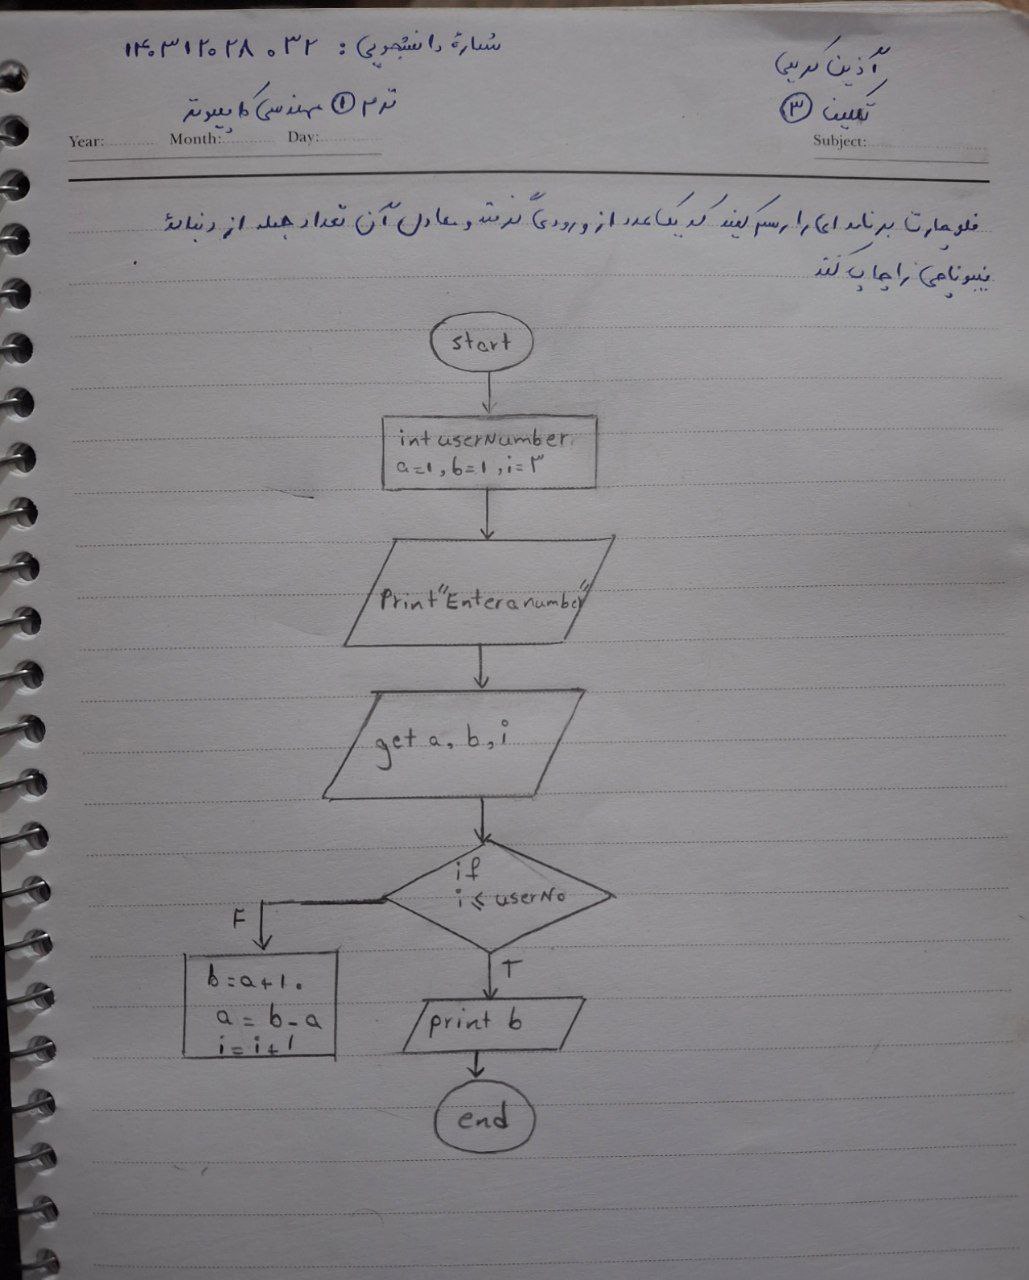 آذین کریمی
شمارهٔ دانشجویی: ۱۴۰۳۱۲۰۲۸۰۳۲
تکلیف ③
ترم ① مهندسی کامپیوتر
Year: Month: Day:
Subject:
فلوچارت برنامه ای را رسم کنید که یک عدد از ورودی گرفته و معادل آن تعداد جمله از دنبالهٔ
فیبوناچی را چاپ کند
start
int userNumber
a=1, b=1, i=۳
Print "Enter a number"
get a, b, i
if
i ≤ userNo
F
T
b=a+1.
a = b-a
i=i+1
print b
end